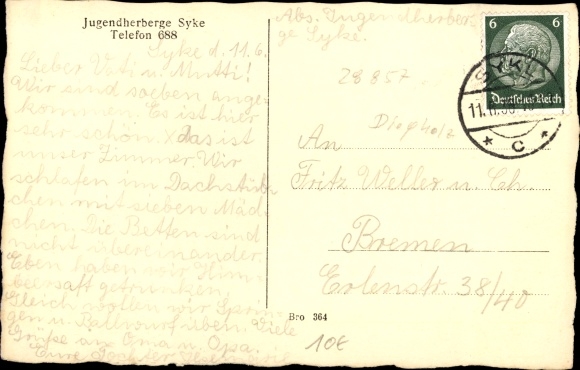 Jugendherberge Syke
Telefon 688
Syke d. 11.6.
Lieber Vati u. Mutti!
Wir sind soeben ange
kommen. Es ist hier
sehr schön. x das ist
unser Zimmer. Wir
schlafen im Dachstüb
chen mit sieben Mäd-
chen. Die Betten sind
nicht übereinander.
Eben haben wir Him-
beersaft getrunken.
Gleich wollen wir Sprin-
gen u. Ballwurf üben. Viele
Grüße an Oma u. Opa.
Eure
Abs. Jugendherber
ge Syke.
28857
Diepholz
6 6
Deutsches Reich
SYKE
11.
* c *
An
Fritz Weller u. Ch
Bremen
Erlenstr. 38/40
Bro 364
10€